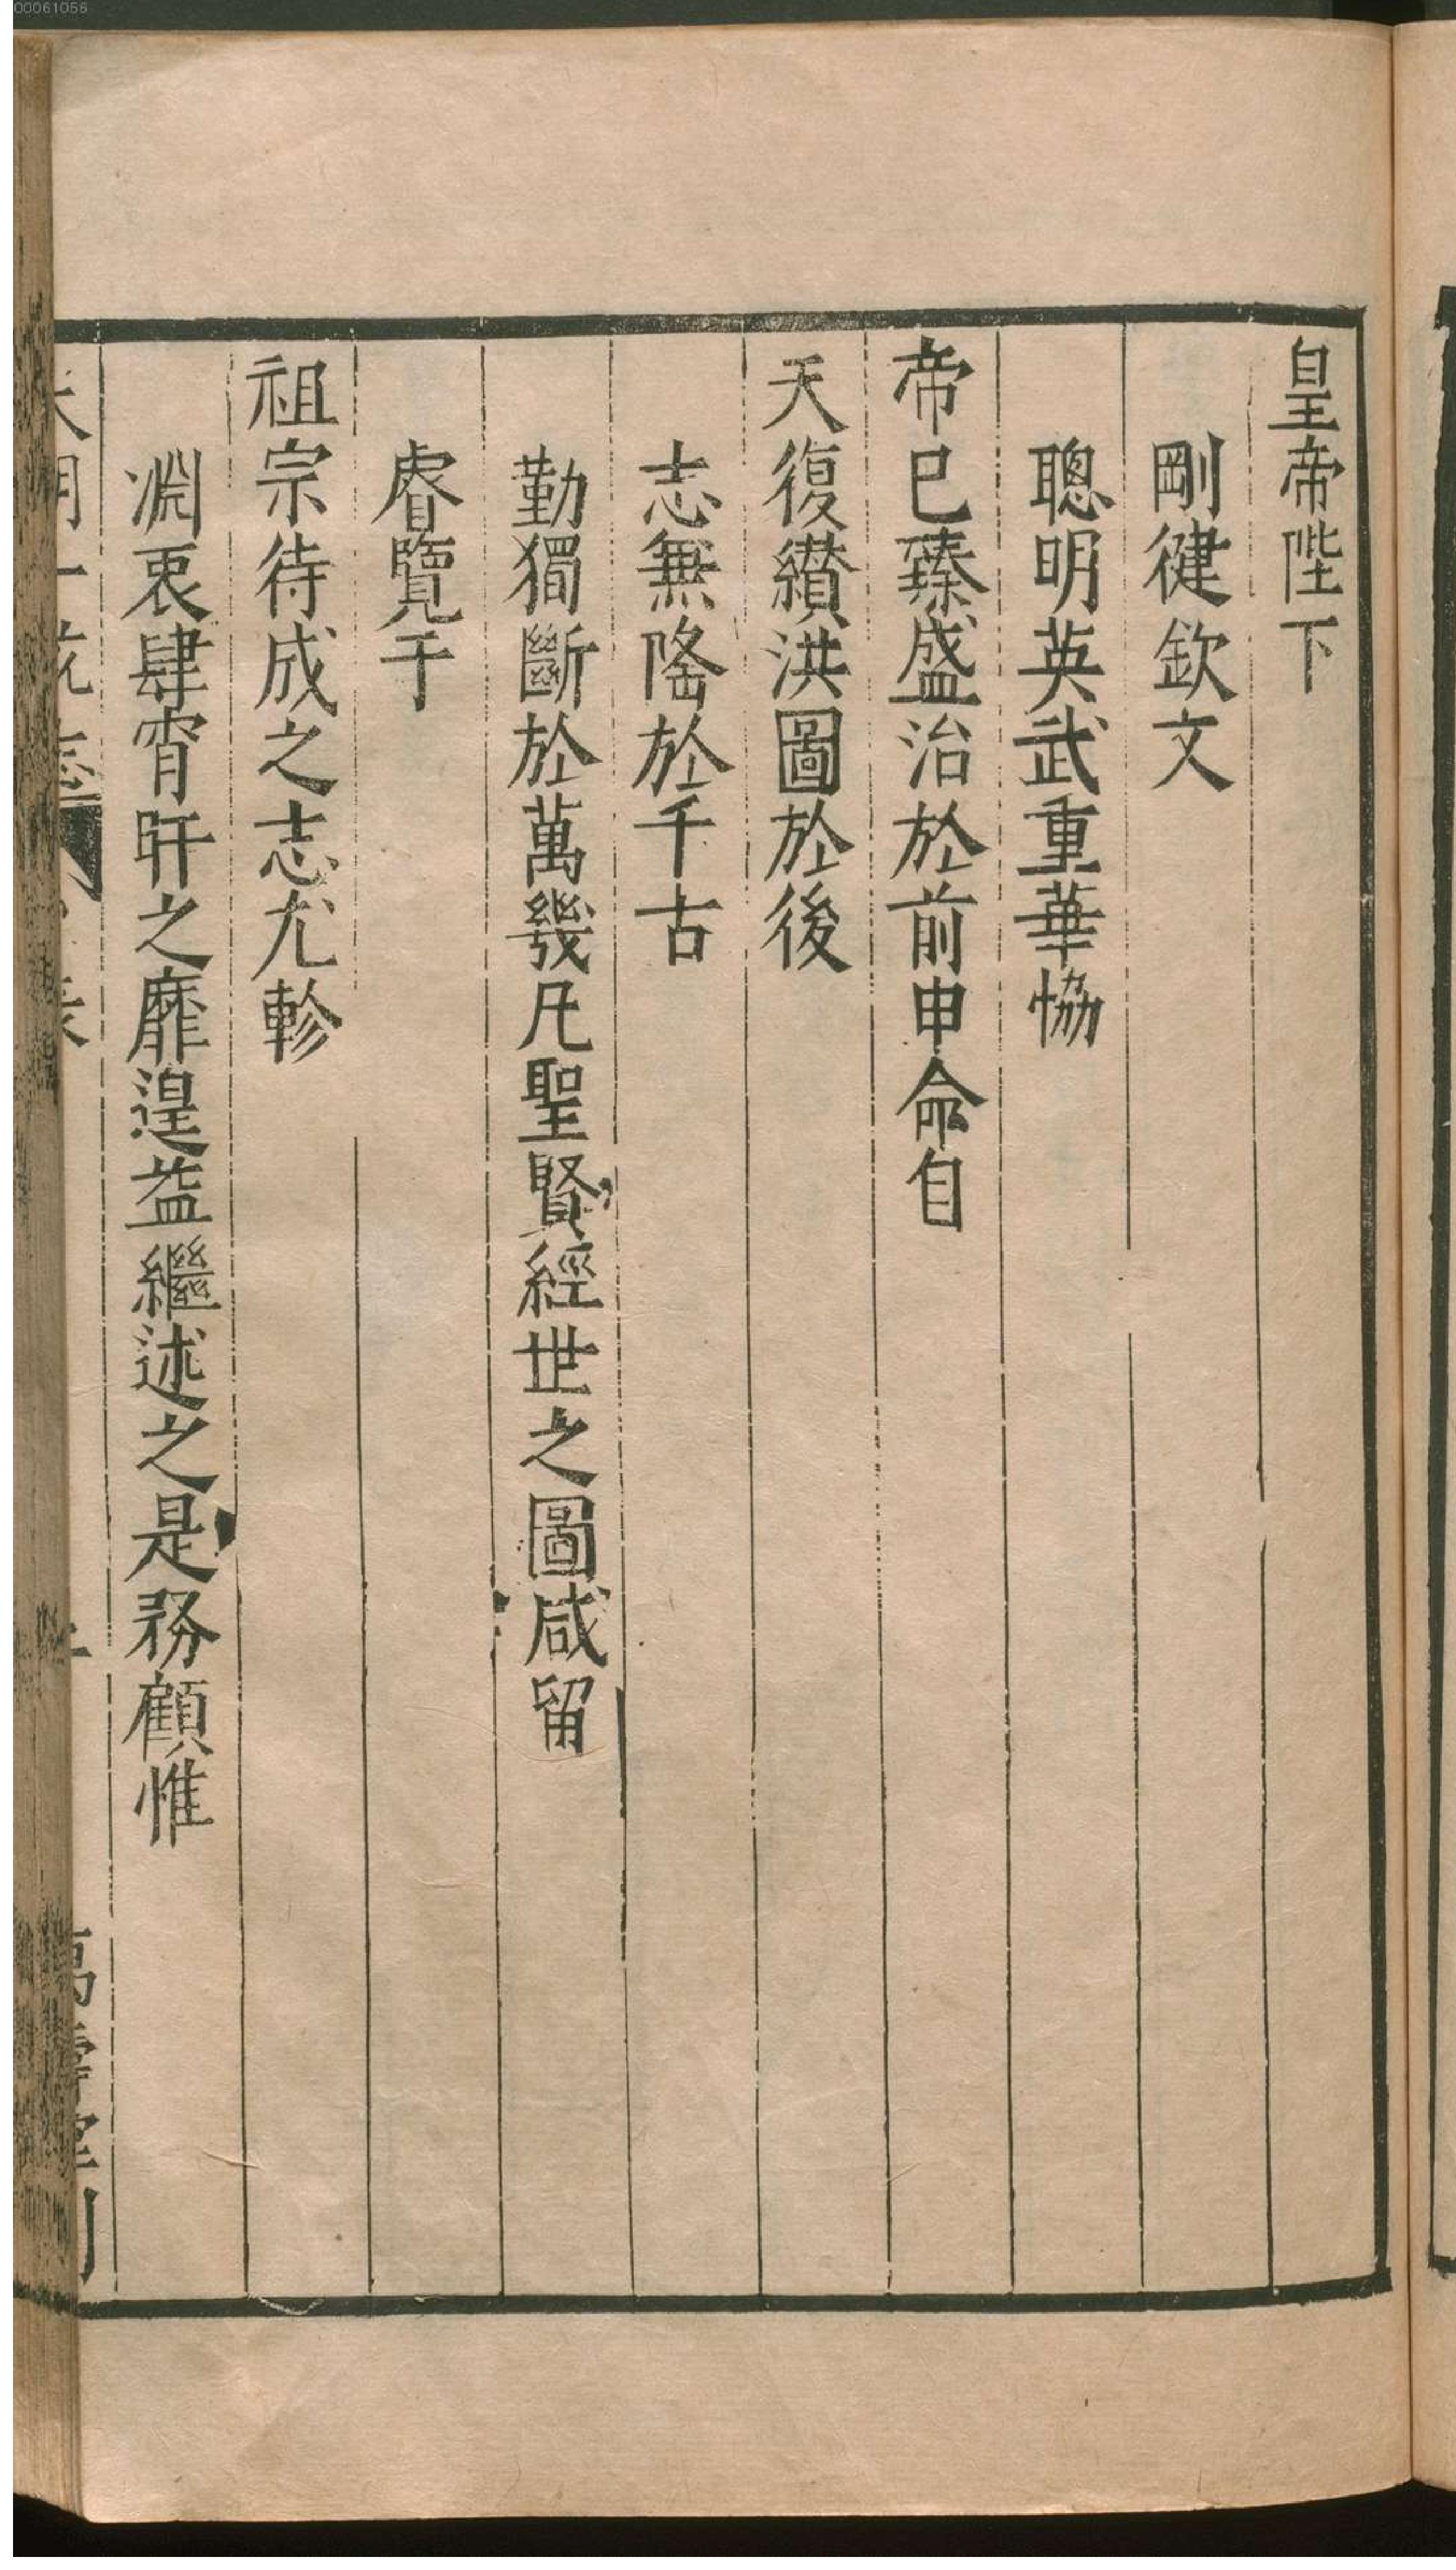 皇帝陛下
剛健欽文
聰明英武重華恊
帝巳臻盛治於前申命自
天復纉洪圖於後
志無隆於千古
勤獨斷於萬幾凡聖賢經世之圖咸留
睿覽于
祖宗待成之志尤軫
淵衷肆宵旰之靡遑益繼述之是務顧惟
00061056